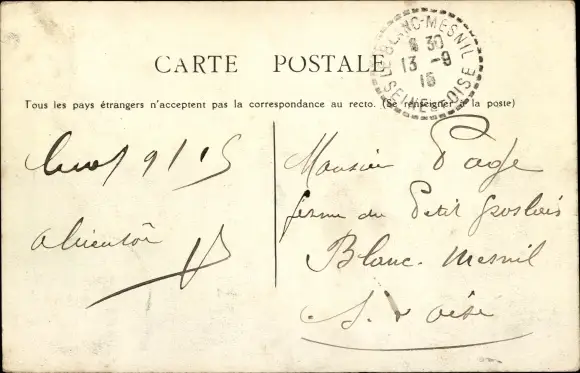 BLANC-MESNIL
8 30
13 -9
15
SEINE-ET-OISE
CARTE POSTALE
Tous les pays étrangers n'acceptent pas la correspondance au recto. (Se renseigner à la poste)
9/15
a bientôt
Monsieur Page
ferme du Petit Groslais
Blanc-Mesnil
S. & Oise